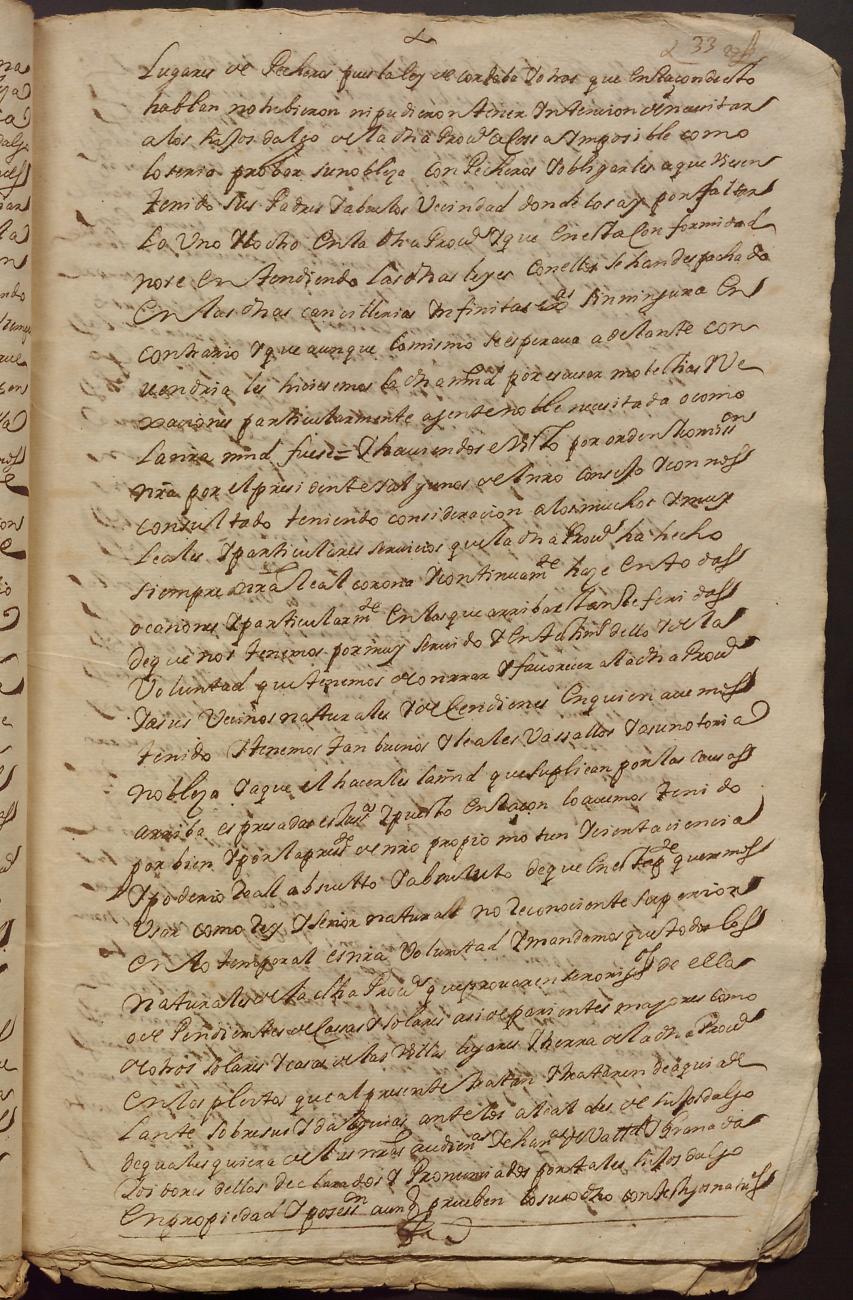 33
Lugares de Pecheros pues la ley de cordoba y otras que en Razon desto
hablan no tubieron ni pudieron tener yntencion de necesitar
a los hijos dalgo de la dha Prouª a cosa ymposible como
lo seria probar su nobleza con Pecheros y obligarles a que ubiesen
tenido sus Padres y abuelos Vecindad donde los ay por faltar
lo Uno y lo otro en la dha Prouª y que en esta conformidad
y no se entendiendo las dhas leyes con ellos se han despachado
en las dhas cancillerias ynfinitas sin ninguna en
contrario y que aunque lo mismo se esperaua adelante con
uendria les hiciesemos la dha mrd por escusar molestias y Ve
xaciones particularmente a gente noble necesitada o como
la nra mrd fuese = y hauiendose Visto por orden y comission
nra por el presidente y algunos de el nro consejo y con nos
consultado teniendo consideracion a los muchos y muy
Leales y particulares seruicios que la dha Prouª ha hecho
siempre a nra Real corona y continuamte hace en todas
ocasiones y particularmte en las que arriba Van Referidas
de que nos tenemos por muy seruido y en dello y de la
Voluntad que tenemos de onrrar y fauorecer a la dha Prouª
y a sus Vecinos naturales y decendientes en quien auemos
tenido y tenemos tan buenos y leales Vasallos y a su notoria
nobleza y a que el hacerles la mrd que suplican por las causas
arriba espresadas es y puesto en Razon lo auemos tenido
por bien y por la preste de nro propio motu y cierta ciencia
y poderio Real absoluto de que en esta pte queremos
Usar como Rey y señor natural no Reconociente superior
en lo temporal es nra Voluntad y mandamos que todos los
naturales de la dha Prouª que prouaren ser originos de ella
o dependientes de Casas y solares asi de parientes mayores como
de otros solares y casas de las Villas lugares y tierra de la dha Prouª
en los pleitos que al presente tratan y trataren de aqui ade
lante sobre sus ydalguias ante los alcaldes de hijosdalgo
de quales quiera de las nras audienas y chans de Valld y Granada
y oidores dellas declarados y Pronunciados por tales hijosdalgo
en propiedad y posesn aunq prueben lo susodho con testigos naturales